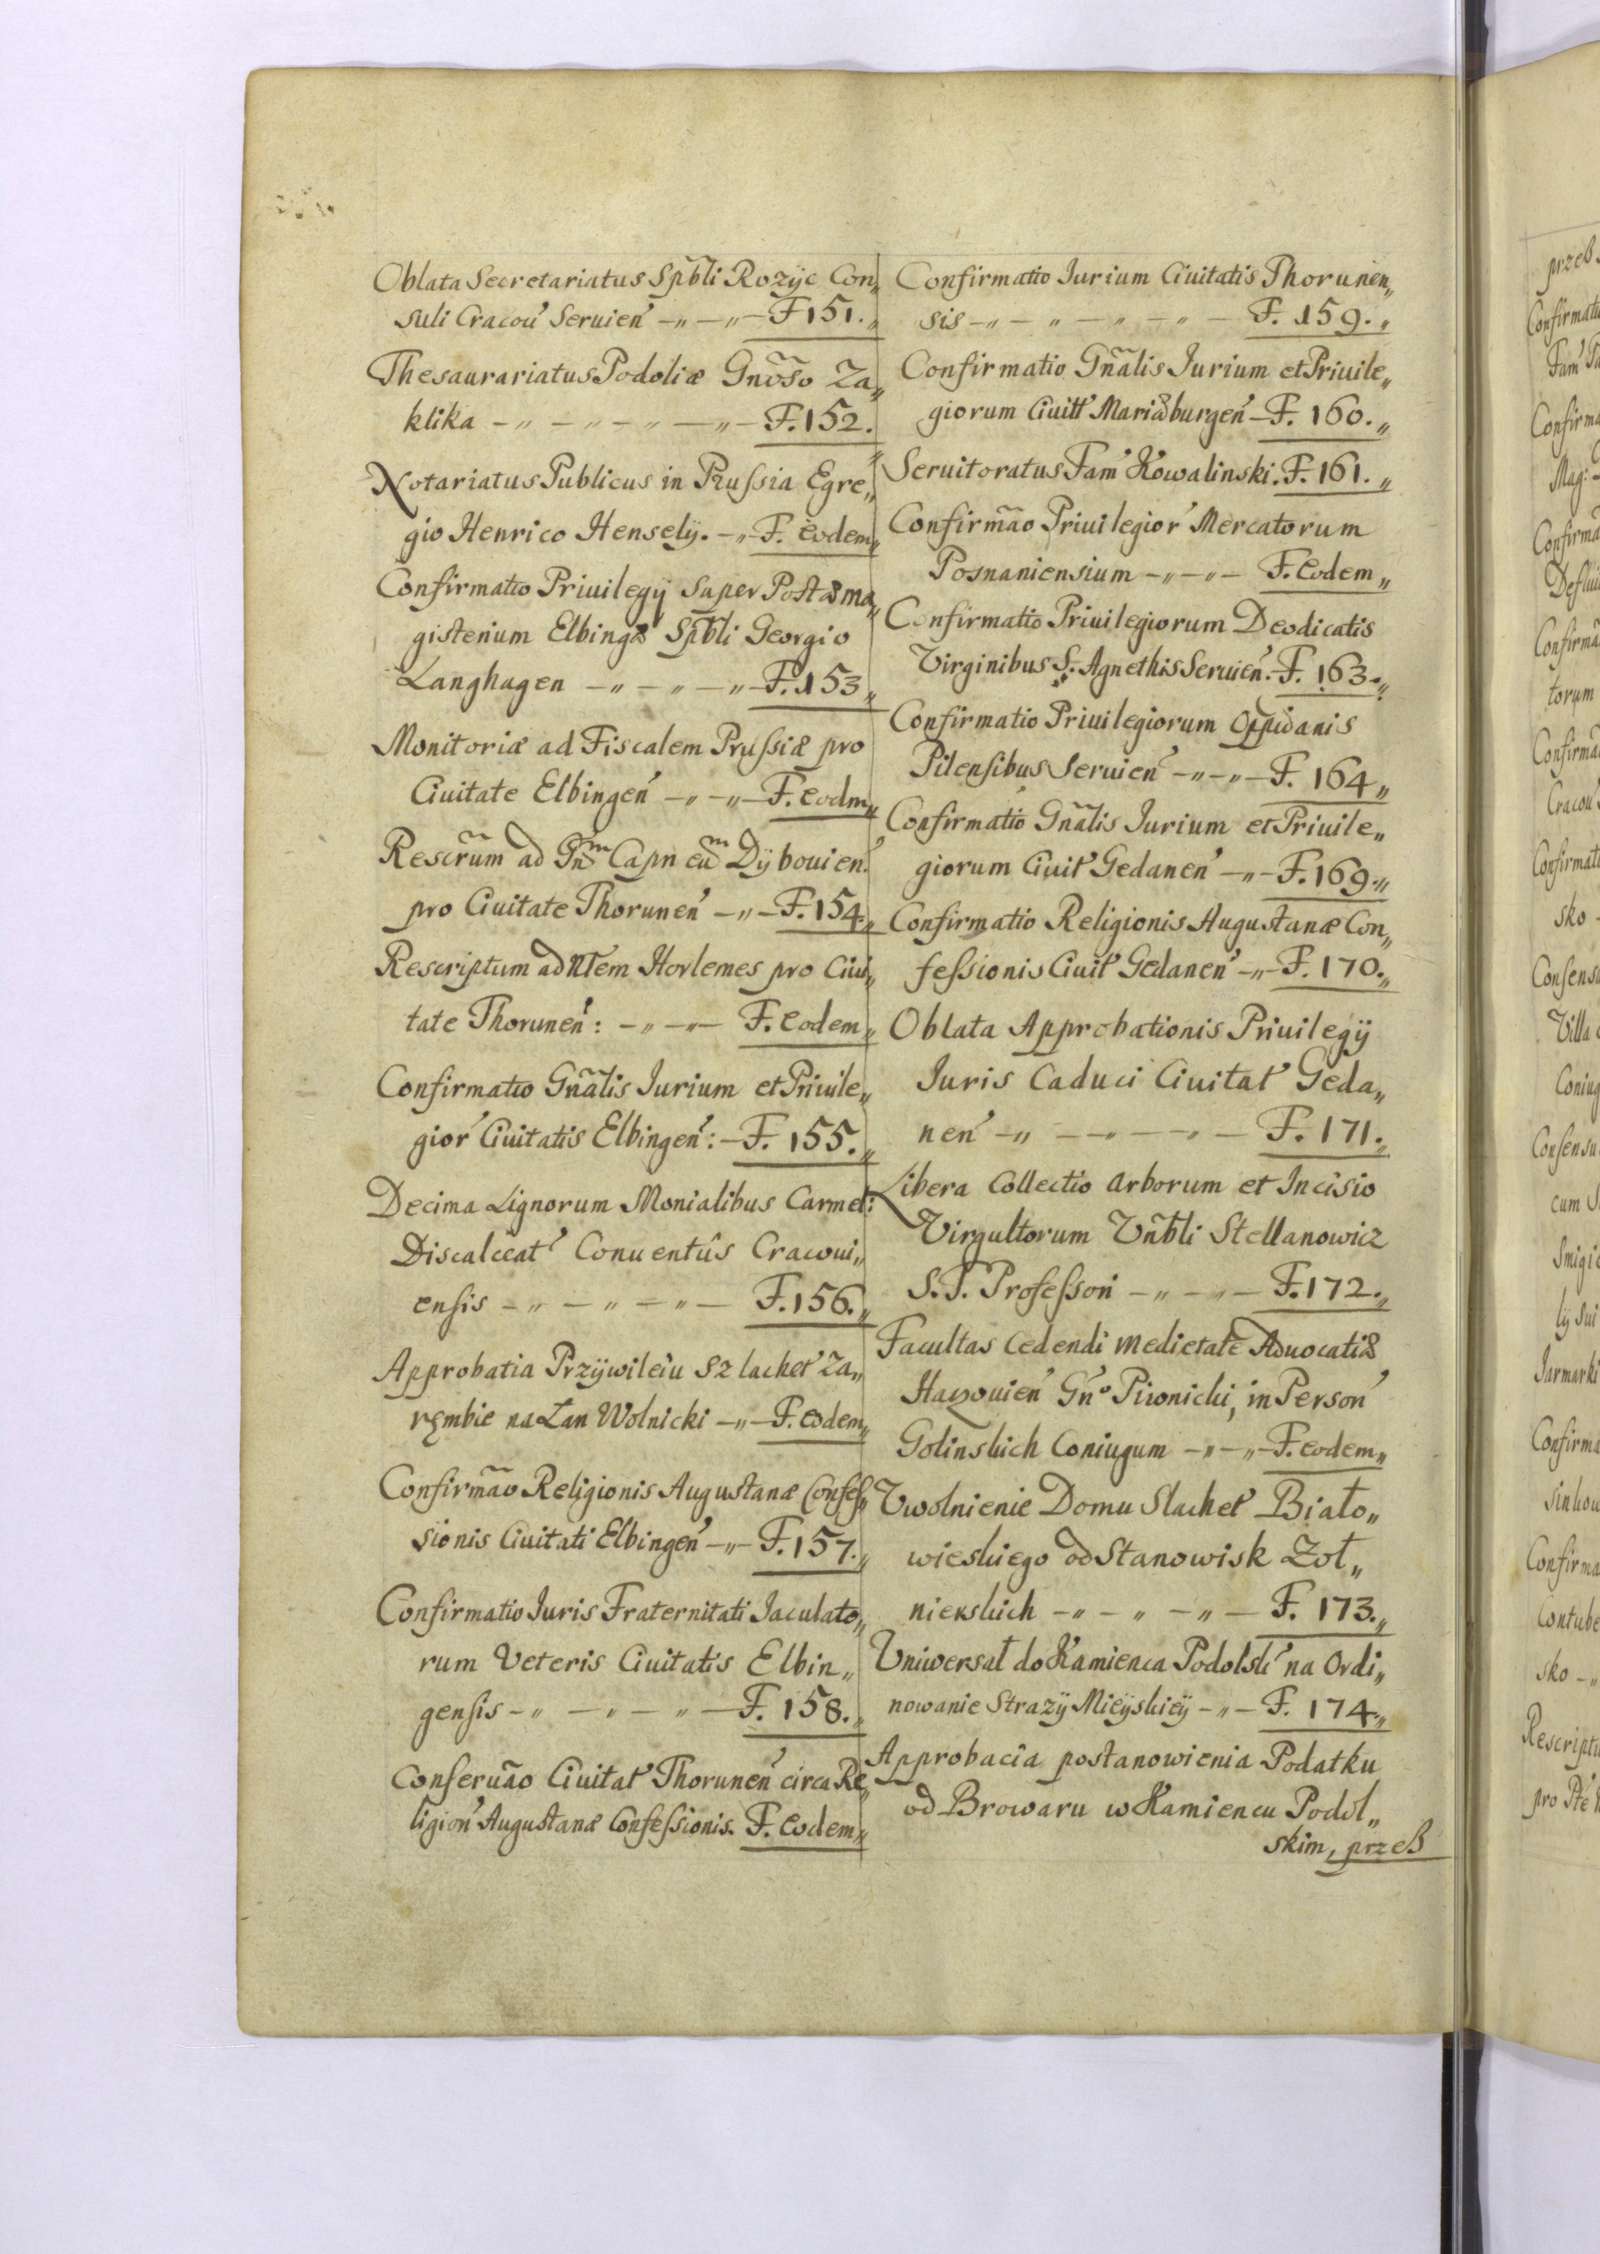 Oblata Secretariatus Spbli Rozÿc Con„
suli Cracou' Seruien' -„-„- F 151.„
Thesaurariatus Podoliæ Gnoso Za„
klika -„-„-„-„- F. 152.„
Notariatus Publicus in Prussia Egre„
gio Henrico Henselÿ. -„- F. eodem„
Confirmatio Priuilegÿ super Postæ ma„
gisterium Elbingæ Spbli Georgio
Langhagen -„-„-„- F. 153„
Monitoriæ ad Fiscalem Prussiæ pro
Ciuitate Elbingen' -„-„- F. eodm„
Rescrum ad Gnm Capneum Dÿbouien'
pro Ciuitate Thorunen' -„- F. 154„
Rescriptum ad Horlemes pro Ciui„
tate Thorunen': -„-„- F. eodem„
Confirmatio Gnalis Iurium et Priuile„
gior' Ciuitatis Elbingen': - F. 155.„
Decima Lignorum Monialibus Carmel:
Discalceat' Conuentûs Cracoui„
ensis -„-„-„- F. 156.„
Approbatia Przÿwileiu Szlachet' Za„
rębie na Łan Wolnicki -„- F. eodem„
Confirmao Religionis Augustanæ Confes„
sionis Ciuitati Elbingen' -„- F. 157.„
Confirmatio Iuris Fraternitati Iaculato„
rum Veteris Ciuitatis Elbin„
gensis -„-„-„- F. 158.„
Conseruao Ciuitat' Thorunen' circa Re„
ligion' Augustanæ Confessionis. F. eodem„
Confirmatio Iurium Ciuitatis Thorunen„
sis -„-„-„-„- F. 159.„
Confirmatio Gnalis Iurium et Priuile„
giorum Ciuitt' Mariæburgen' - F. 160.„
Seruitoratus Fam' Kowalinski. F. 161.„
Confirmao Priuilegior' Mercatorum
Posnaniensium -„-„- F. eodem„
Confirmatio Priuilegiorum Deodicatis
Virginibus S. Agnethis Seruien'. F. 163„
Confirmatio Priuilegiorum Oppidanis
Pilensibus Seruien' -„-„- F. 164„
Confirmatio Gnalis Iurium et Priuile„
giorum Ciuit' Gedanen' -„- F. 169„
Confirmatio Religionis Augustanæ Con„
fessionis Ciuit' Gedanen' -„- F. 170.„
Oblata Approbationis Priuilegÿ
Iuris Caduci Ciuitat' Geda„
nen' -„-„-„- F. 171.„
Libera Collectio arborum et Incisio
Virgultorum Vnbli Stellanowicz
S. T. Professori -„-„- F. 172.„
Facultas Cedendi medietate Aduocatiæ
Gno Pironicki, in Person'
Golinskich Coniugum -„-„- F. eodem„
Vwolnienie Domu Slachet' Biało„
wieskiego od Stanowisk Zoł„
nierskich -„-„-„- F. 173.„
Vniwersał do Kamienca Podolsk' na Ordi„
nowanie Strazÿ Mieÿskieÿ -„- F. 174„
Approbacia postanowienia Podatku
od Browaru w Kamiencu Podol„
skim, przeß
przeß
Confirmati
Confirma
Mag:
Confirma
Defluit
Confirma
torum
Confirma
Cracou'
Confirmati
sko -
Consensu
Villa
Coniug
Consensu
cum
Smigie
Jarmarki
Confirma
sinkow
Confirma
Contube
sko -„
Rescriptu
pro